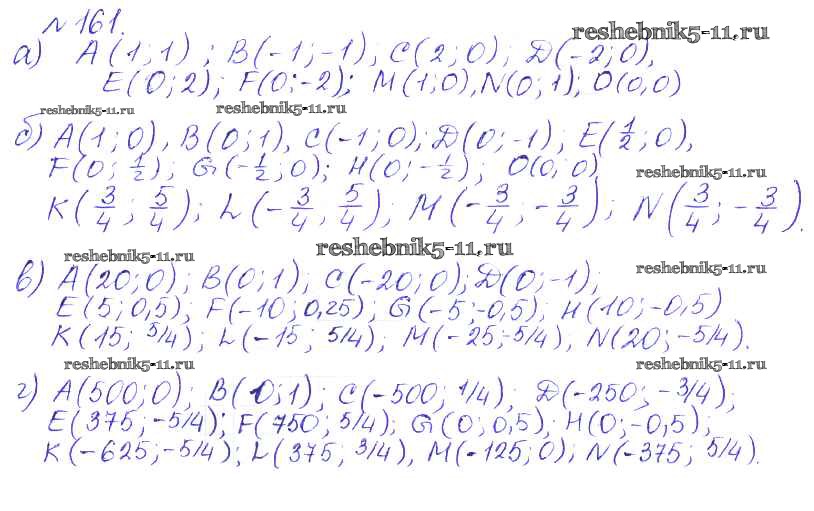 №161.
reshebnik5-11.ru
а) A(1;1); B(-1;-1), C(2;0); D(-2;0),
E(0;2); F(0;-2); M(1;0), N(0;1); O(0,0)
reshebnik5-11.ru reshebnik5-11.ru
б) A(1;0), B(0;1), C(-1;0); D(0;-1); E(1/2;0),
F(0;1/2); G(-1/2;0); H(0;-1/2); O(0,0)
reshebnik5-11.ru
K(3/4;5/4); L(-3/4,5/4), M(-3/4;-3/4); N(3/4;-3/4).
reshebnik5-11.ru
reshebnik5-11.ru reshebnik5-11.ru
в) A(20;0); B(0;1), C(-20;0); D(0;-1);
E(5;0,5), F(-10;0,25); G(-5;-0,5); H(10;-0,5)
K(15;5/4); L(-15;5/4); M(-25;-5/4), N(20;-5/4).
reshebnik5-11.ru reshebnik5-11.ru
г) A(500;0); B(0;1); C(-500;1/4); D(-250;-3/4);
E(375;-5/4); F(750;5/4); G(0;0,5), H(0;-0,5);
K(-625;-5/4); L(375;3/4), M(-125;0); N(-375;5/4).